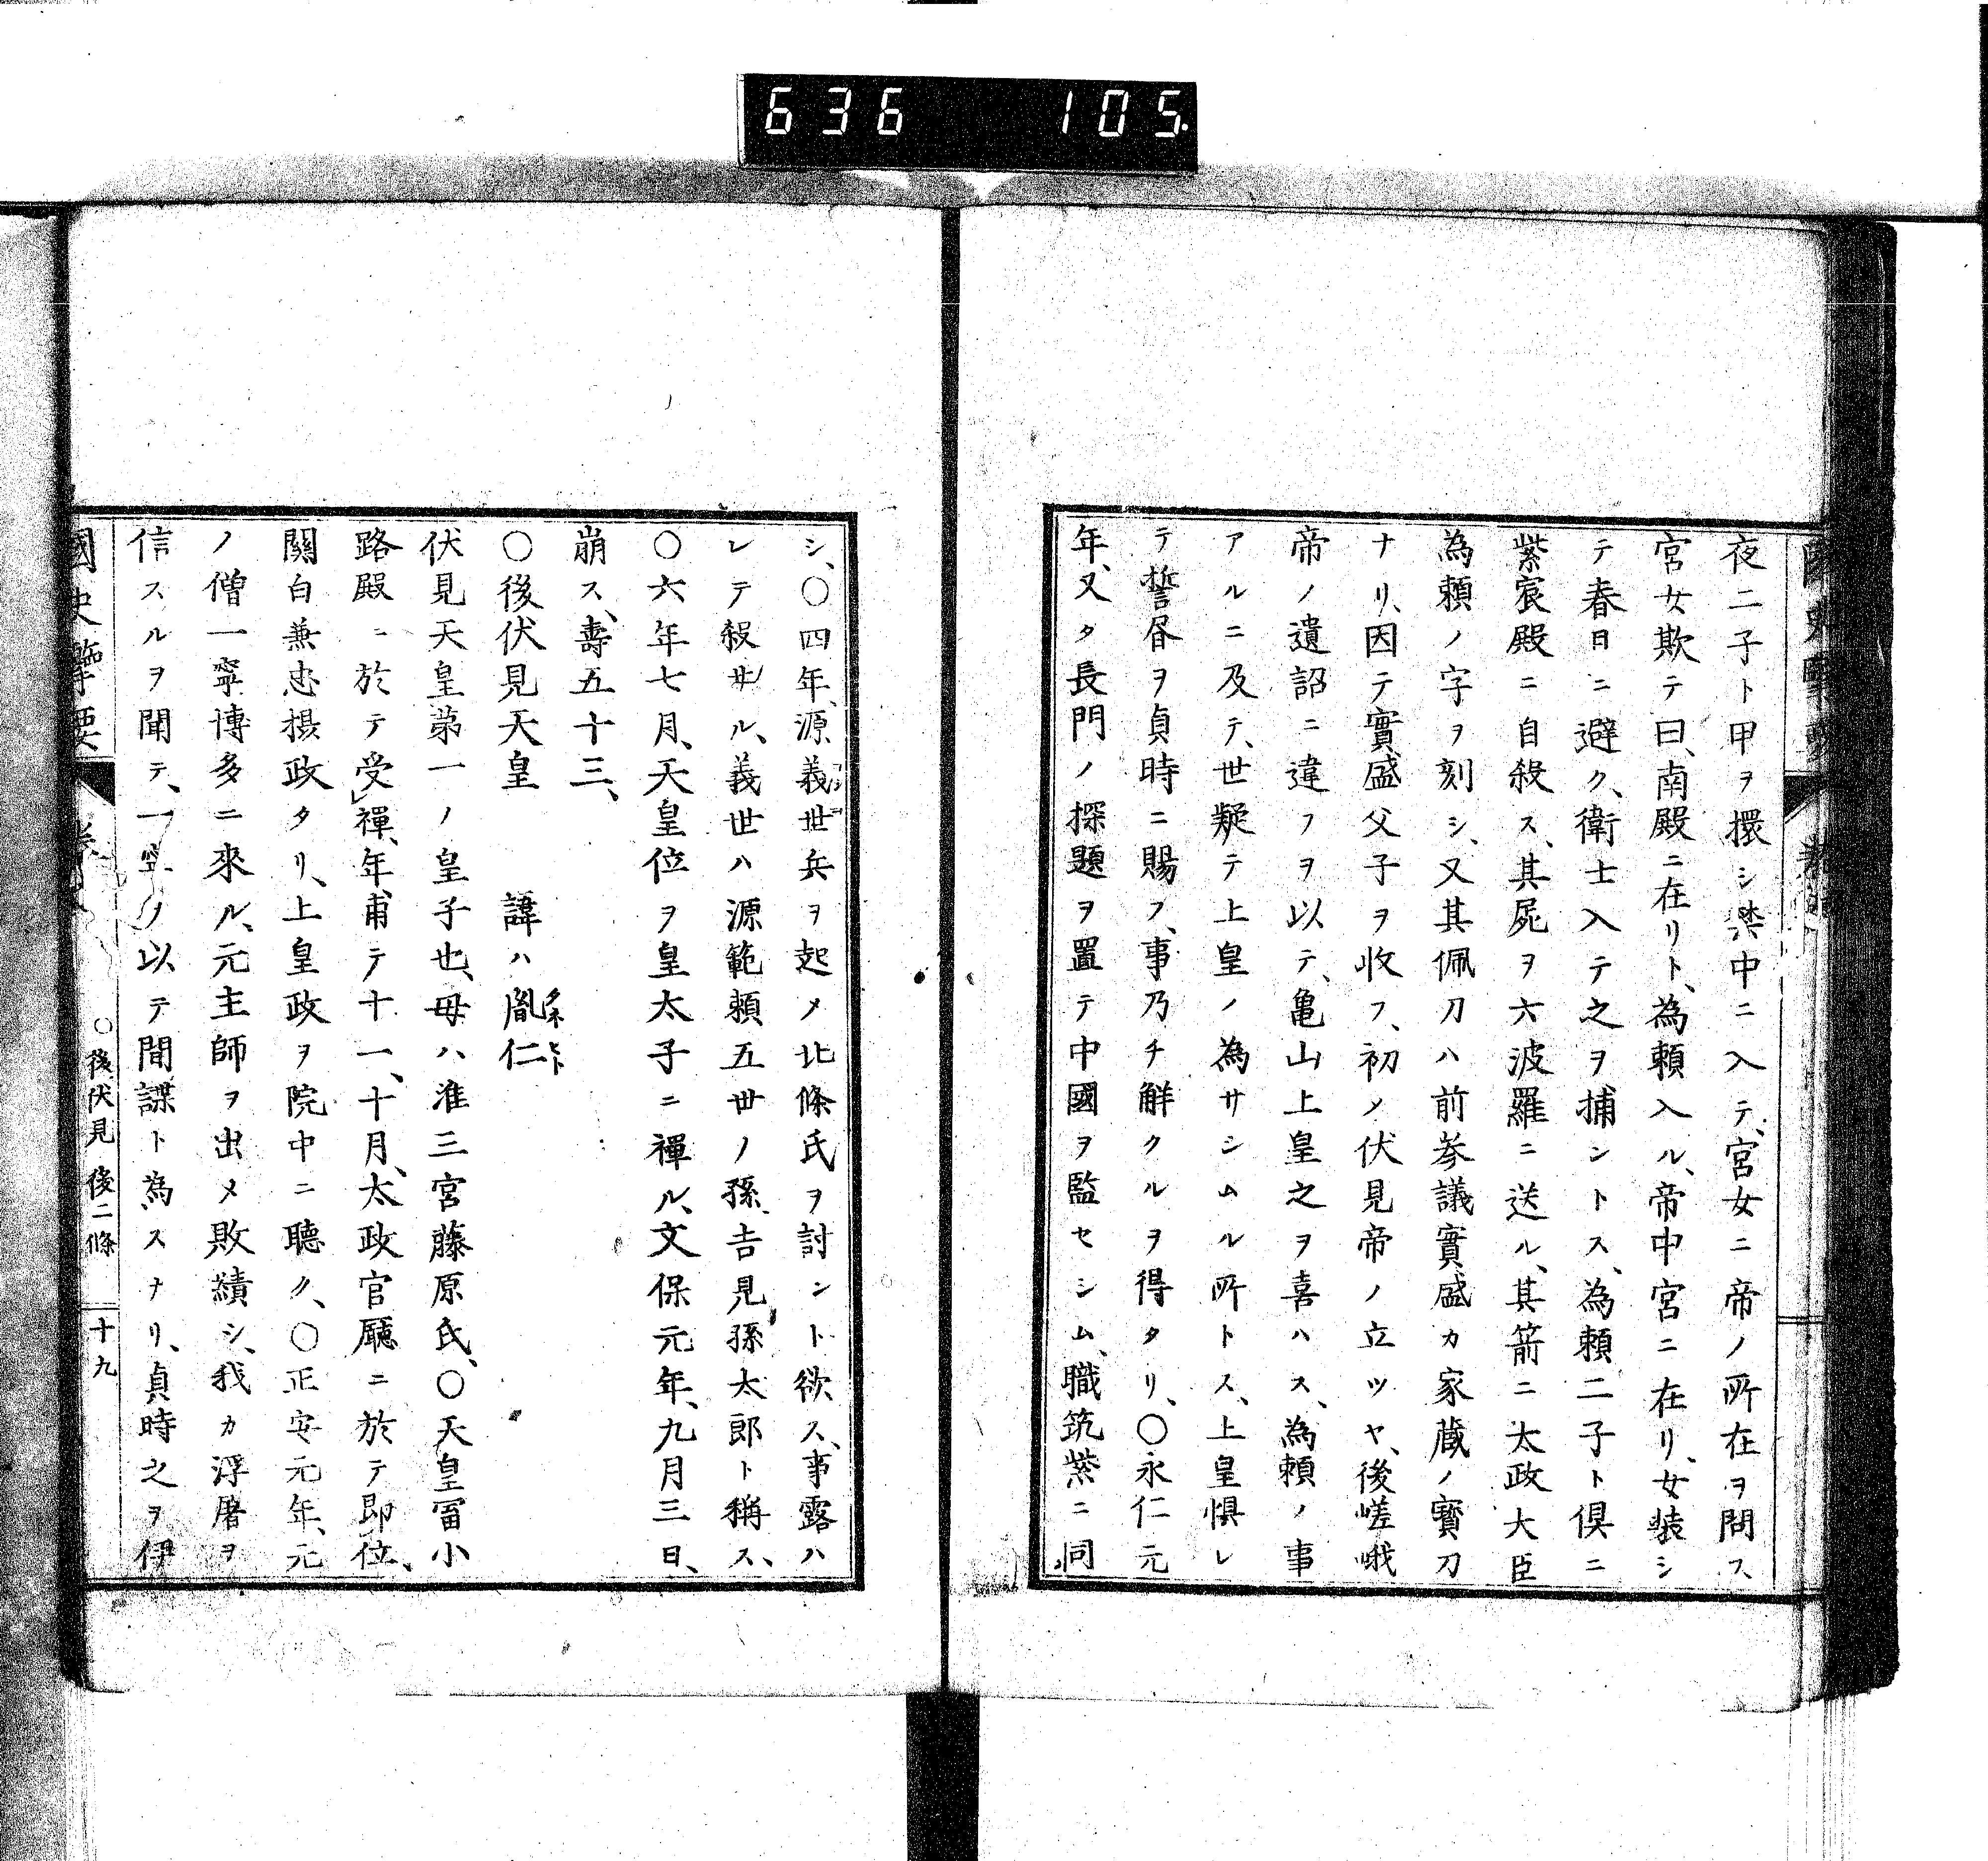 636 105.
夜二子ト甲ヲ擐シ禁中ニ入テ、宮女ニ帝ノ所在ヲ問ス
宮女欺テ曰、南殿ニ在リト、為頼入ル、帝中宮ニ在リ、女装シ
テ春日ニ避ク、衛士入テ之ヲ捕ントス、為頼二子ト倶ニ
紫宸殿ニ自殺ス、其屍ヲ六波羅ニ送ル、其箭ニ太政大臣
為頼ノ字ヲ刻シ、又其佩刀ハ前参議實盛カ家蔵ノ寳刀
ナリ、因テ實盛父子ヲ收フ、初メ伏見帝ノ立ツヤ、後嵯峨
帝ノ遺詔ニ違フヲ以テ、亀山上皇之ヲ喜ハス、為頼ノ事
アルニ及テ、世疑テ上皇ノ為サシムル所トス、上皇惧レ
テ誓昏ヲ貞時ニ賜フ、事乃チ解クルヲ得タリ、〇永仁元
年、又タ長門ノ探題ヲ置テ中國ヲ監セシム、職筑紫ニ同
シ、〇四年、源義世兵ヲ起メ北條氏ヲ討ント欲ス、事露ハ
レテ殺サル、義世ハ源範頼五世ノ孫、吉見孫太郎ト稱ス、
〇六年七月、天皇位ヲ皇太子ニ禪ル、文保元年、九月三日、
崩ス、壽五十三、
〇後伏見天皇 諱ハ胤仁タネヒト
伏見天皇第一ノ皇子也、母ハ准三宮藤原氏、〇天皇冨小
路殿ニ於テ受禪、年甫テ十一、十月、太政官廳ニ於テ即位、
關白兼忠摂政タリ、上皇政ヲ院中ニ聴ク、〇正安元年、元
ノ僧一寧博多ニ來ル、元主師ヲ出メ敗績シ、我カ浮屠ヲ
信スルヲ聞テ、一寧ノ以テ間諜ト為スナリ、貞時之ヲ伊
國史擥要
〇後伏見 後二條
十九